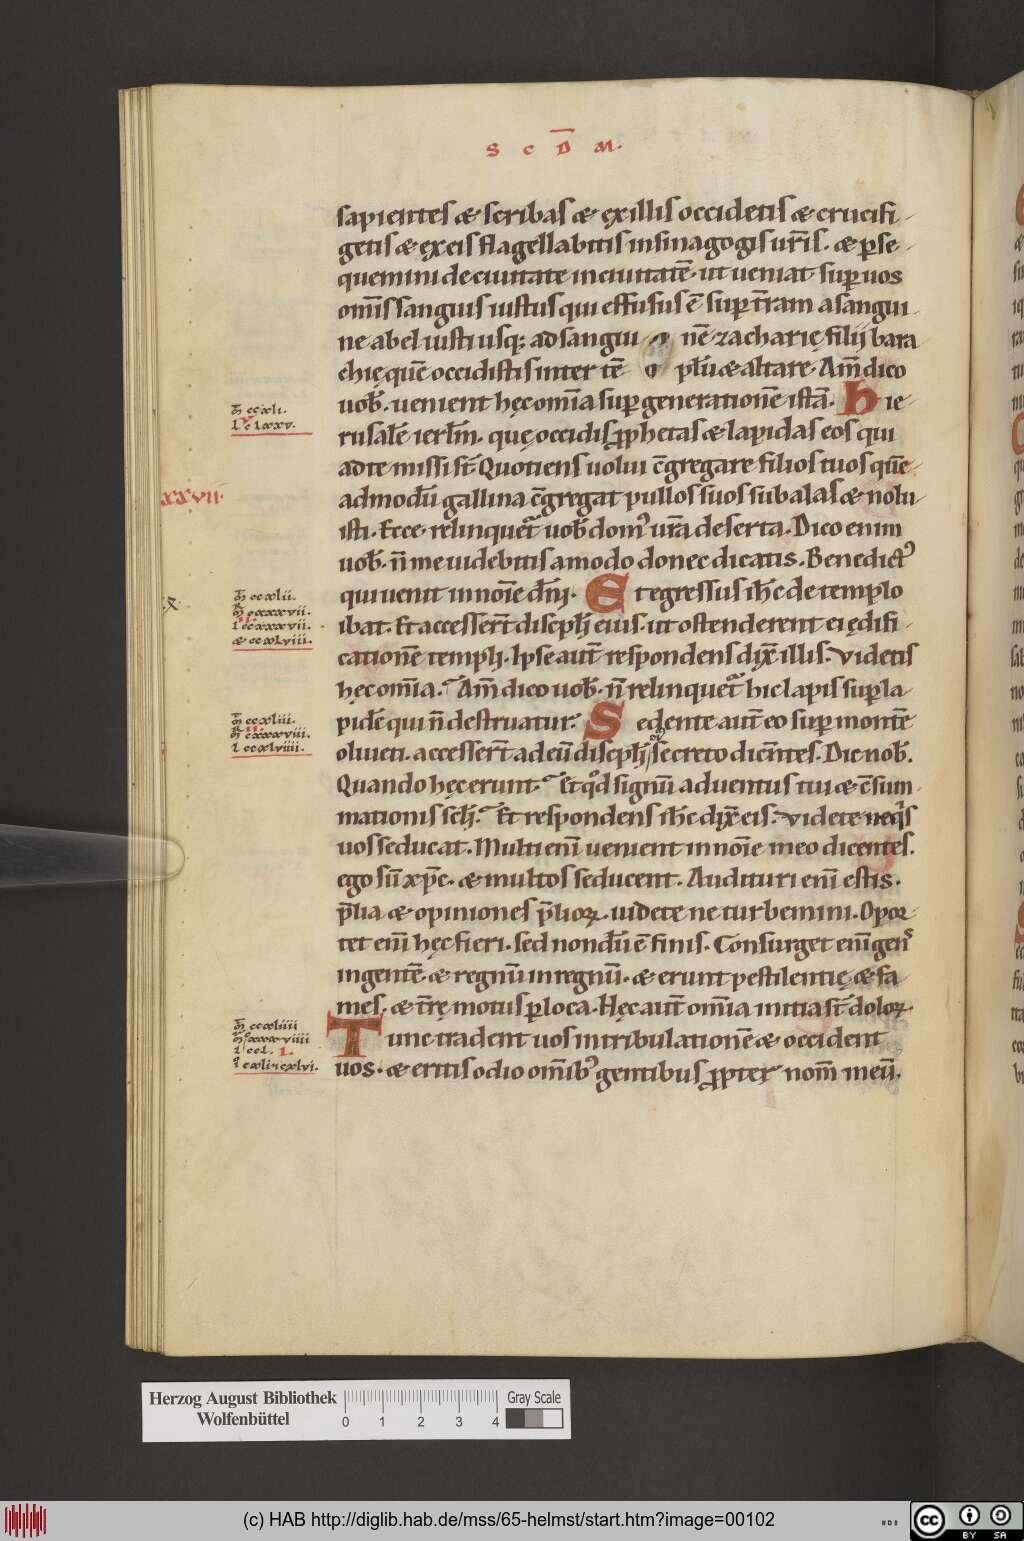 S C D̅ M.
sapientes & scribas & ex illis occidetis & crucifi-
getis & ęx eis flagellabitis in sinagogis ur̅is. & p̲se-
quemini de ciuitate in ciuitate̅. ut ueniat sup̲ uos
om̅is sanguis iustus qui effusus e̅ sup̲ t̅ram a sangui-
ne abel iusti usq; ad sangui ne̅ zacharię filii bara
chię que̅ occidistis inter te̅ plu̅ & altare. Am̅ dico
uob̅. uenient hęc om̅ia sup̲ generatione̅ ista̅. Hie-
rusale̅ ierl̅m. quę occidis ꝓphetas & lapidas eos qui
ad te missi st̅. Quotiens uolui c̅gregare filios tuos que̅-
admodu̅ gallina c̅gregat pullos suos sub alas & nolu-
isti. Ecce relinquet᷒ uob̅ dom᷒ ur̅a deserta. Dico enim
uob̅. n̅ me uidebitis amodo donec dicatis. Benedict᷒
qui uenit in noi̅e dn̅i. Et egressus ih̅c de templo
ibat. Et accesser̅t discipl̅i eius. ut ostenderent ei ędifi-
catione̅ templi. Ipse aut̅ respondens dix̅ illis. Videtis
hęc om̅ia. Am̅ dico uob̅. n̅ relinquet᷒ hic lapis sup̲ la-
pide̅ qui n̅ destruatur. Sedente aut̅ eo sup̲ monte̅
oliueti. accesser̅t ad eu̅ discipl̅i secreto dice̅ntes. Dic nob̅.
Quando hęc erunt. Et qd̅ signu̅ aduentus tui & c̅sum-
mationis scl̅i. Et respondens ih̅c dix̅ eis. Videte neqⁱs
uos seducat. Multi eni̅ uenient in noi̅e meo dicentes.
ego su̅ xp̅c. & multos seducent. Audituri eni̅ estis.
p̅lia & opiniones p̅lioꝝ. uidete ne turbemini. Opor-
tet eni̅ hęc fieri. sed nondu̅ e̅ finis. Consurget eni̅ gens
in gente̅. & regnu̅ in regnu̅. & erunt pestilentię & fa-
mes. & t̅rę motus p̲ loca. Hęc aut̅ om̅ia initia st̅ doloꝝ.
Tunc tradent uos in tribulatione̅ & occident
uos. & eritis odio om̅ib᷒ gentibus ꝓpter nom̅ meu̅.
m̅ ccxli.
l c lxxv.
xxvii.
m̅ ccxlii.
m̅ cxxxvii.
l ccxxxvii.
& ccxlviii.
m̅ ccxliii.
m̅ cxxxviii.
l ccxlviiii.
m̅ ccxliiii
m̅ cxxxviiii
l ccl. I.
cxli & cxlvi.
Herzog August Bibliothek
Wolfenbüttel
0 1 2 3 4
Gray Scale
(c) HAB http://diglib.hab.de/mss/65-helmst/start.htm?image=00102
cc BY SA